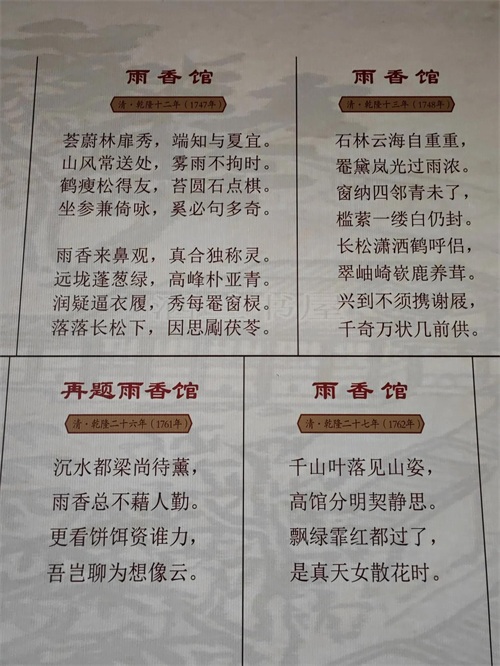 雨香馆
清·乾隆十二年（1747年）
荟蔚林扉秀，端知与夏宜。
山风常送处，雾雨不拘时。
鹤瘦松得友，苔圆石点棋。
坐参兼倚咏，奚必句多奇。
雨香来鼻观，真合独称灵。
远垅蓬葱绿，高峰朴亚青。
润疑逼衣履，秀每罨窗棂。
落落长松下，因思劚茯苓。
雨香馆
清·乾隆十三年（1748年）
石林云海自重重，
罨黛岚光过雨浓。
窗纳四邻青未了，
槛萦一缕白仍封。
长松潇洒鹤呼侣，
翠岫崎嵚鹿养茸。
兴到不须携谢屐，
千奇万状几前供。
再题雨香馆
清·乾隆二十六年（1761年）
沉水都梁尚待薰，
雨香总不藉人勤。
更看饼饵资谁力，
吾岂聊为想像云。
雨香馆
清·乾隆二十七年（1762年）
千山叶落见山姿，
高馆分明契静思。
飘绿霏红都过了，
是真天女散花时。